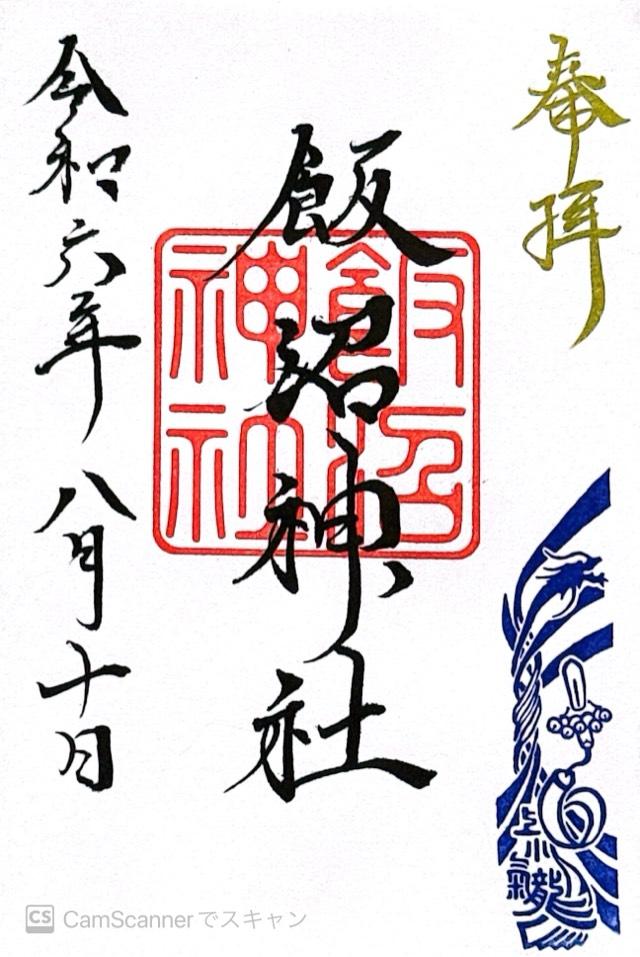 奉拝
飯沼神社
飯沼
神社
令和六年 八月十日
上小
氣龍
CS CamScannerでスキャン